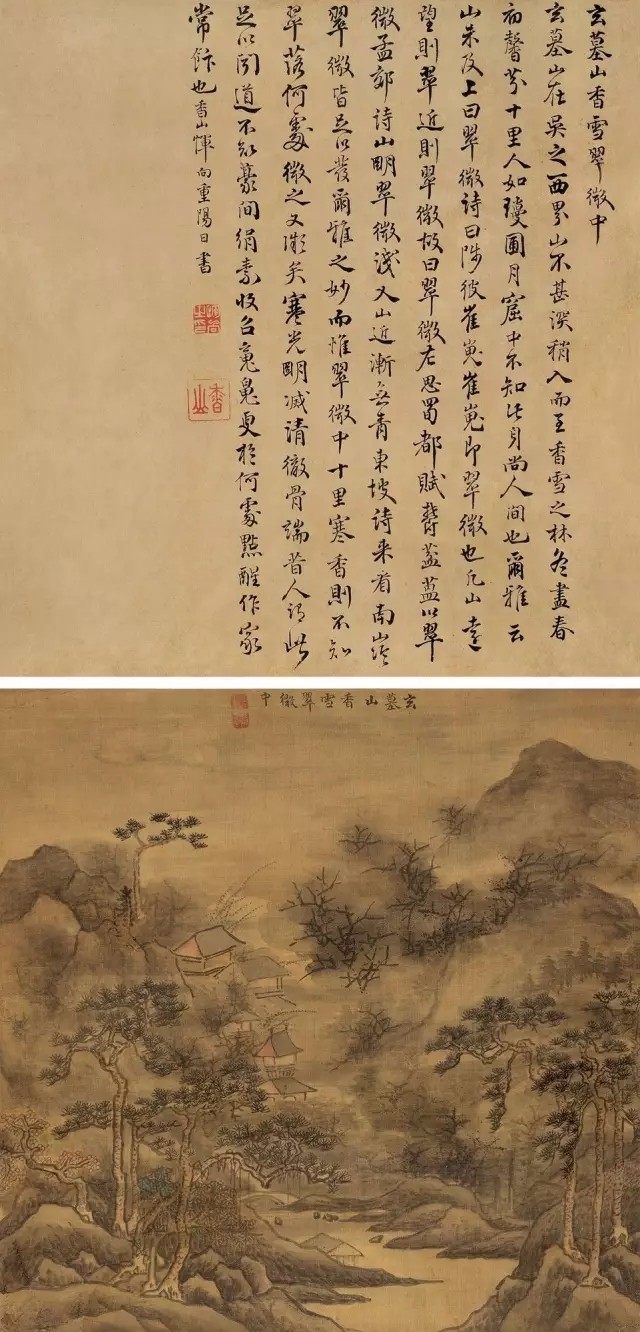 玄墓山香雪翠微中
玄墓山在吳之西界山不甚深稍入而至香雪之林冬盡春
初馨芬十里人如瓊圃月窟中不知此身尚人間也爾雅云
山未及上曰翠微詩曰陟彼崔嵬崔嵬即翠微也凡山遠
望則翠近則翠微故曰翠微左思蜀都賦以翠
微孟郊詩山明翠微淺又山近漸無青東坡詩來看南嶺
翠微皆足以發爾雅之妙而惟翠微中十里寒香則不知
翠落何處微之又微矣寒光明滅清徹骨端昔人謂此
足以聞道不知豪間絹素收召魂魄更於何處點醒作家
常也香山惲向重陽日書
香山
玄墓山香雪翠微中